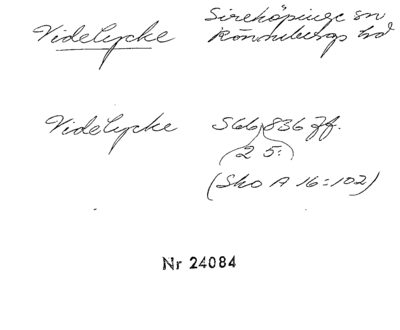 Videlycke Sireköpinge sn
Rönnebergs hd
Videlycke S66, 836 ff.
(2 5:)
(Sko A 16:102)
Nr 24084